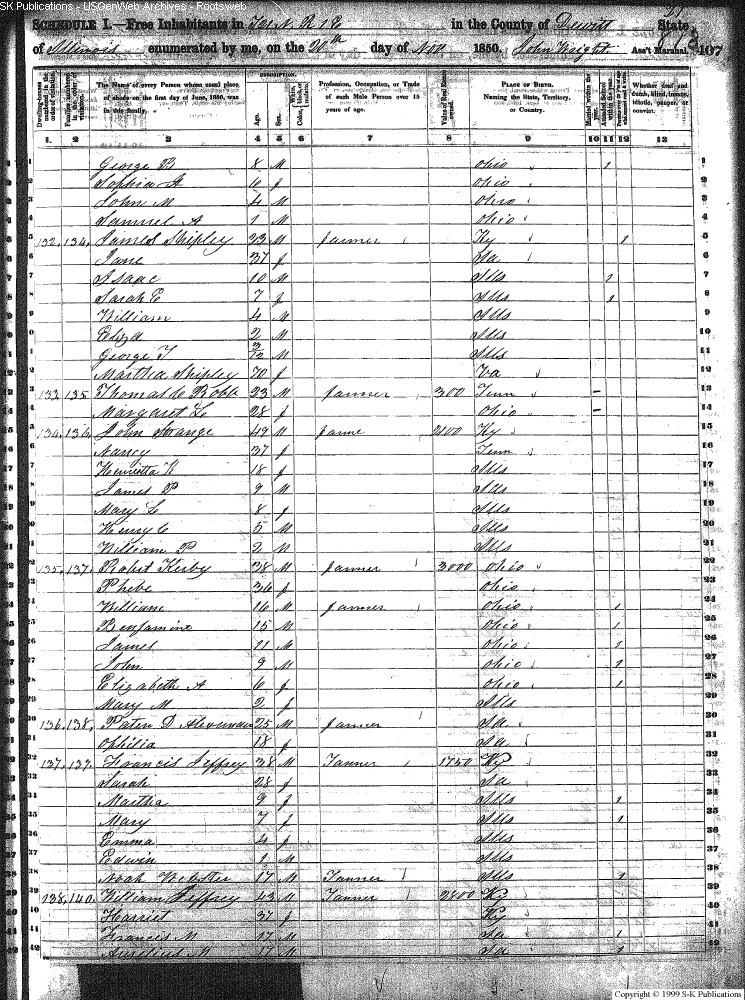 SK Publications - USGenWeb Archives - Rootsweb
SCHEDULE I.—Free Inhabitants in R 1 E in the County of Dewitt State
of Illinois enumerated by me, on the 20th day of Nov 1850. John Wright Ass't Marshal. 107
Dwelling-houses numbered in the order of visitation.
Families numbered in the order of visitation.
The Name of every Person whose usual place of abode on the first day of June, 1850, was in this family.
DESCRIPTION.
Age.
Sex.
Color, White, black, or mulatto.
Profession, Occupation, or Trade of each Male Person over 15 years of age.
Value of Real Estate owned.
PLACE OF BIRTH. Naming the State, Territory, or Country.
Married within the year.
Attended School within the year.
Persons over 20 y'rs of age who cannot read & write.
Whether deaf and dumb, blind, insane, idiotic, pauper, or convict.
1. 2 3 4 5 6 7 8 9 10 11 12 13
1 George B 8 M Ohio 1 1
2 Sophia A 6 f Ohio 2
3 John M 4 M Ohio 3
4 Samuel A 1 M Ohio 4
5 132 134 James Shipley 23 M farmer Ky 1 5
6 Jane 37 f Ia 6
7 Isaac 10 M Ills 1 7
8 Sarah E 7 f Ills 1 8
9 William 4 M Ills 9
10 Eliza 2 M Ills 10
11 George T 3/12 M Ills 11
12 Martha Shipley 70 f Va 12
13 133 135 Thomas C Robb 23 M farmer 300 Tenn – 13
14 Margaret L 28 f Ohio – 14
15 134 136 John Strange 49 M farme 2100 Ky 15
16 Nancy 37 f Tenn 16
17 Henrietta K 18 f Ills 17
18 James P 9 M Ills 18
19 Mary L 8 f Ills 19
20 Henry C 5 M Ills 20
21 William P 2 M Ills 21
22 135 137 Robert Kirby 38 M farmer 3000 Ohio 22
23 Phebe 36 f Ohio 23
24 William 16 M farmer Ohio 1 24
25 Benjamine 15 M Ohio 1 25
26 James 11 M Ohio 1 26
27 John 9 M Ohio 1 27
28 Elizabeth A 6 f Ohio 1 28
29 Mary M 2 f Ills 29
30 136 138 Paten D Alexander 25 M farmer Ia 30
31 Ophilia 18 f Ia 31
32 137 139 Francis Jeffrey 38 M Tanner 1750 Ky 32
33 Sarah 28 f Ia 33
34 Martha 9 f Ills 1 34
35 Mary 7 f Ills 1 35
36 Emma 4 f Ills 36
37 Edwin 1 M Ills 37
38 Noah Webster 17 M Tanner Ills 1 38
39 138 140 William Jeffrey 43 M Tanner 2800 Ky 39
40 Harriet 37 f Ky 40
41 Francis M 17 M Ia 1 41
42 Aurelius M 17 M Ia 1 42
Copyright © 1999 S-K Publications